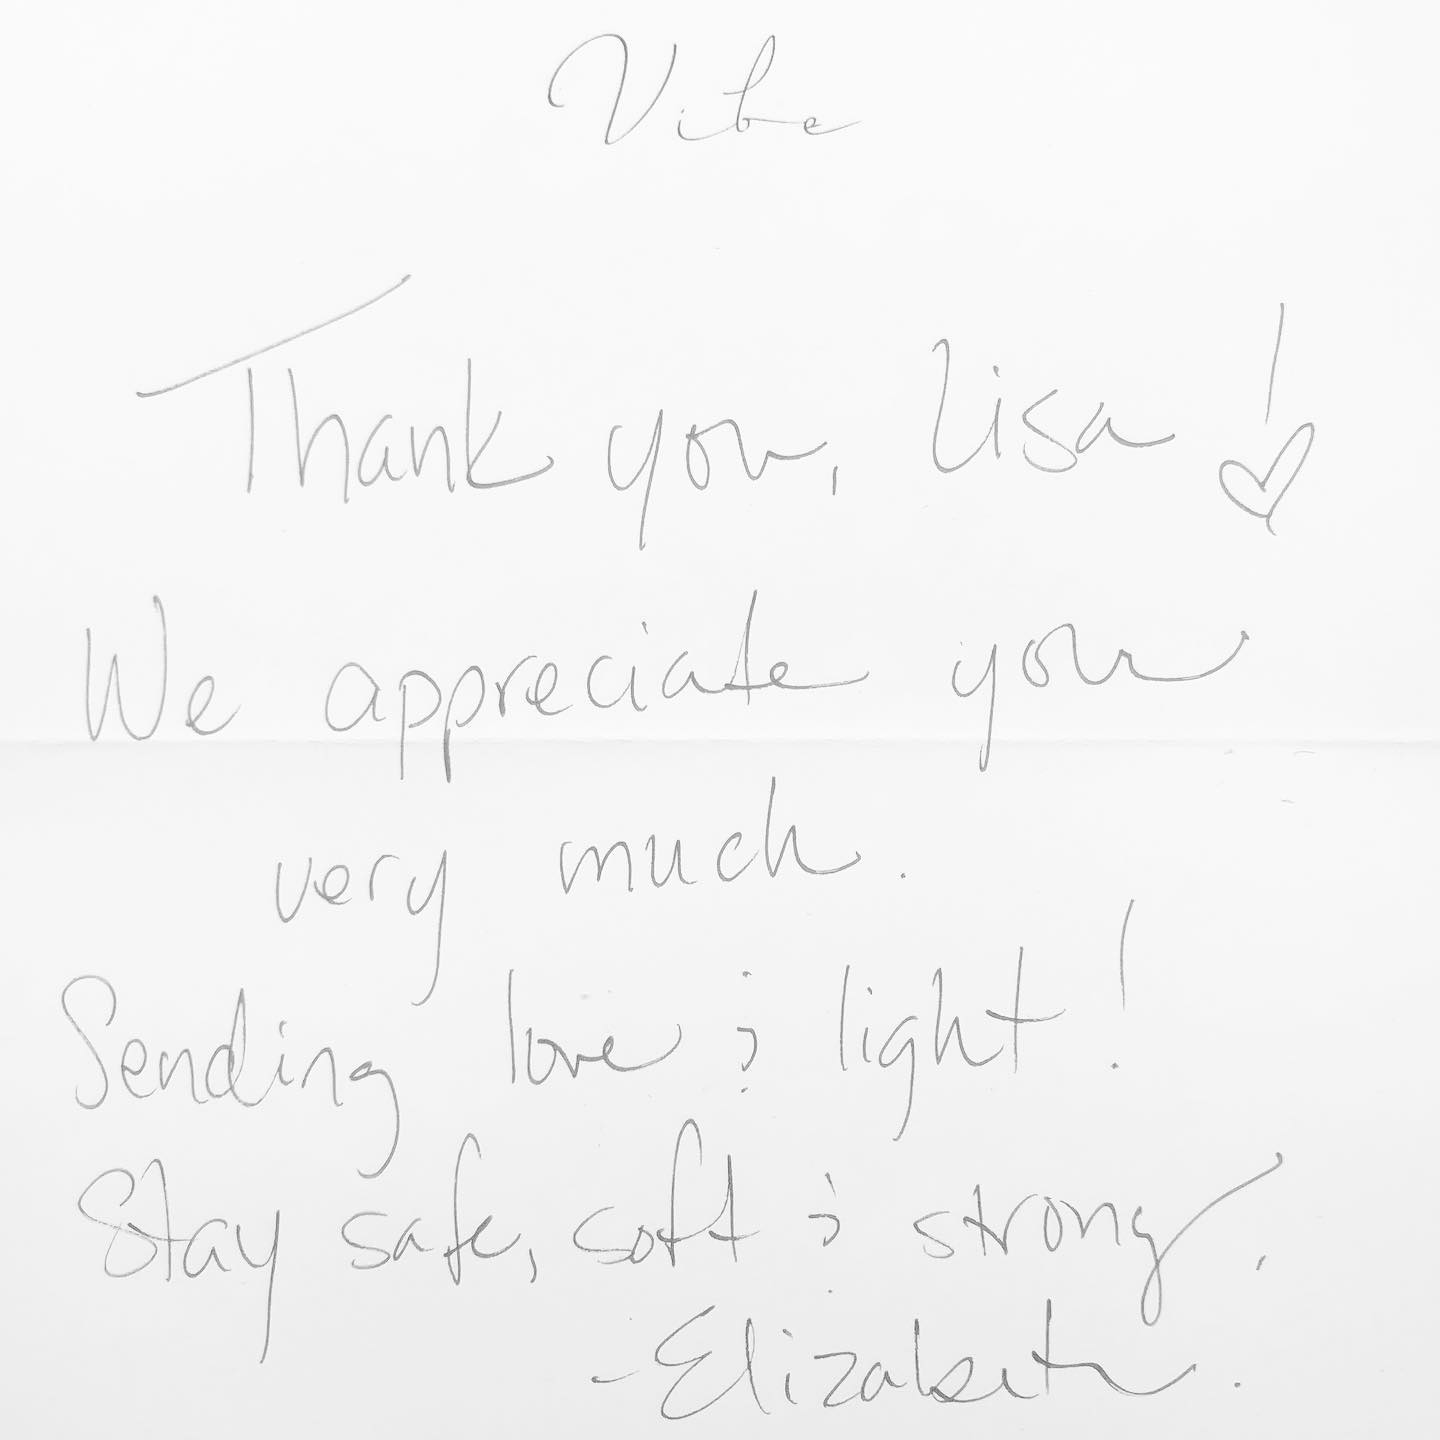 Vibe
Thank you, Lisa!
We appreciate you
very much.
Sending love & light!
Stay safe, soft & strong,
-Elizabeth.